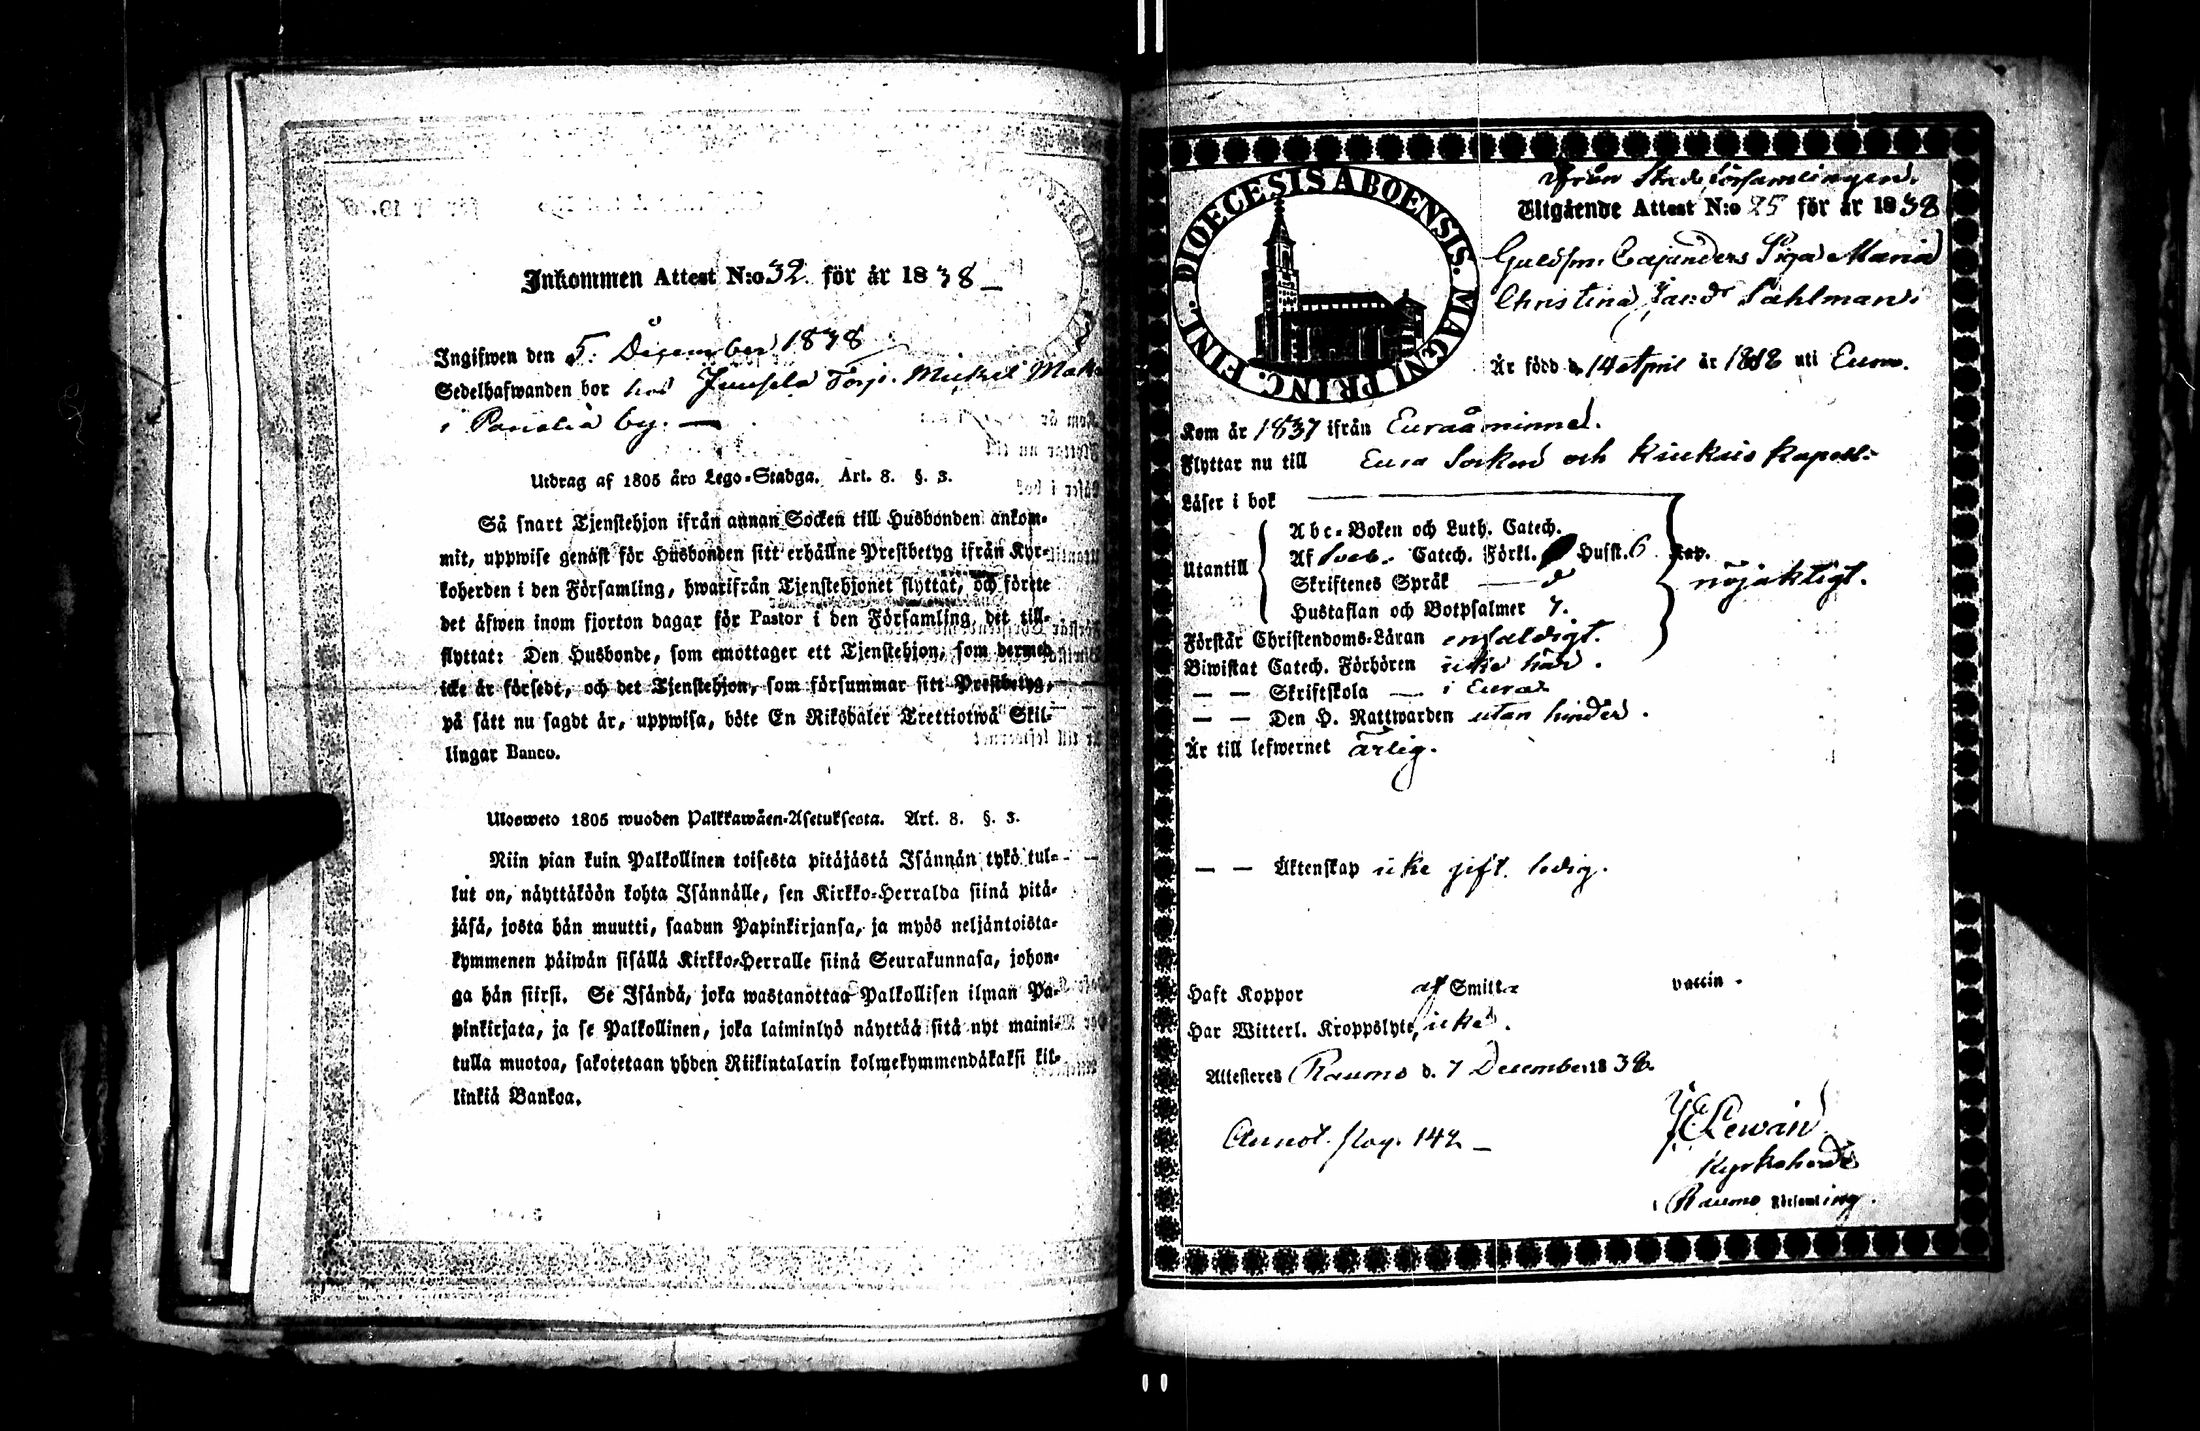 Inkommen Attest N:o 32. för år 1838
Ingifwen den 5. December 1838
Sedelhafwanden bor hos Juusela Torp. Mickel
i Panelia by.
Utdrag af 1805 års Lego-Stadga. Art. 8. §. 3.
Så snart Tjenstehjon ifrån annan Socken till Husbonden ankom-
mit, uppwise genast för Husbonden sitt erhållne Prestbetyg ifrån Kyr-
koherden i den Församling, hwarifrån Tjenstehjonet flyttat, och förete
det äfwen inom fjorton dagar för Pastor i den Församling, det till-
flyttat: Den Husbonde, som emottager ett Tjenstehjon, som dermed
icke är försedt, och det Tjenstehjon, som försummar sitt Prestbetyg,
på sätt nu sagdt är, uppwisa, böte En Riksdaler Trettiotwå Skil-
lingar Banco.
Ulosweto 1805 wuoden Palkkawäen-Asetuksesta. Art. 8. §. 3.
Niin pian kuin Palkollinen toisesta pitäjästä Isännän tykö tul-
lut on, näyttäköön kohta Isännälle, sen Kirkko-Herralda siinä pitä-
jäsä, josta hän muutti, saadun Papinkirjansa, ja myös neljäntoista-
kymmenen päiwän sisällä Kirkko-Herralle siinä Seurakunnasa, johon-
ga hän siirsi. Se Isändä, joka wastanottaa Palkollisen ilman Pa-
pinkirjata, ja se Palkollinen, joka laiminlyö näyttää sitä nyt maini-
tulla muotoa, sakotetaan yhden Riikintalarin kolmekymmendäkaksi kil-
linkiä Bankoa.
FINL. DIOECESIS ABOENSIS. MAGNI PRINC.
ifrån Stads församlingen.
Utgående Attest N:o 25 för år 1838
Guldsm. Cajanders Piga Maria
Christina Sahlman
Är född d. 14 April år 1818 uti Eura.
Kom år 1837 ifrån Euraåminne.
Flyttar nu till Eura Socken och Kiukais Kapell.
Läser i bok
Utantill
Abc-Boken och Luth. Catech.
Af Sveb. Catech. Förkl. Husst. 6 Kap.
Skriftenes Språk
Hustaflan och Botpsalmer 7.
nöjaktigt.
Förstår Christendoms-Läran enfaldigt.
Biwistat Catech. Förhören icke här.
— — Skriftskola — i Eura
— — Den H. Nattwarden utan hinder.
Är till lefwernet ärlig.
— — Äktenskap icke gift. ledig.
Haft Koppor af Smitta vaccin.
Har Witterl. Kroppslyte, icke.
Attesteres Raumo d. 7 December 1838.
Annot. pag. 142
Lewan
Kyrkoherde
Raumo Församling.